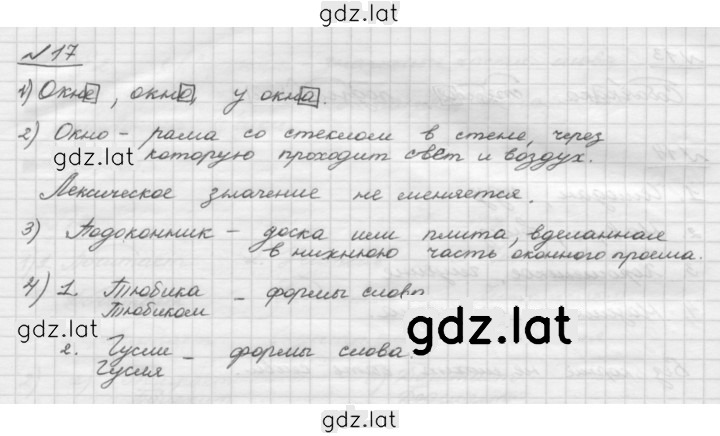 gdz.lat
№ 17
1) Окне, окно, у окна.
2) Окно - рама со стеклом в стене, через
gdz.lat которую проходит свет и воздух.
Лексическое значение не меняется.
3) Подоконник - доска или плита, вделанная
в нижнюю часть оконного проема.
4) 1. Тюбика - формы слова
Тюбиком
gdz.lat
gdz.lat
2. Гусли - формы слова.
Гусля
gdz.lat